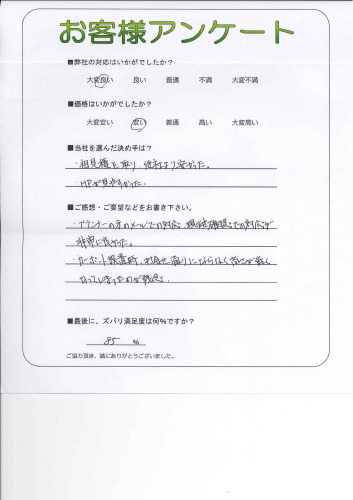 お客様アンケート
■弊社の対応はいかがでしたか？
大変良い 良い 普通 不満 大変不満
■価格はいかがでしたか？
大変安い 安い 普通 高い 大変高い
■当社を選んだ決め手は？
・相見積を取り 他社より安かった。
・HPが見やすかった。
■ご感想・ご要望などをお書き下さい。
・プランナーの方のメールでの対応、現地確認での対応が
非常に良かった。
・カーポート設置時、打合せ通りにならなく高さが低く
なってしまったのが残念。
■最後に、ズバリ満足度は何％ですか？
85 %
ご協力頂き、誠にありがとうございました。